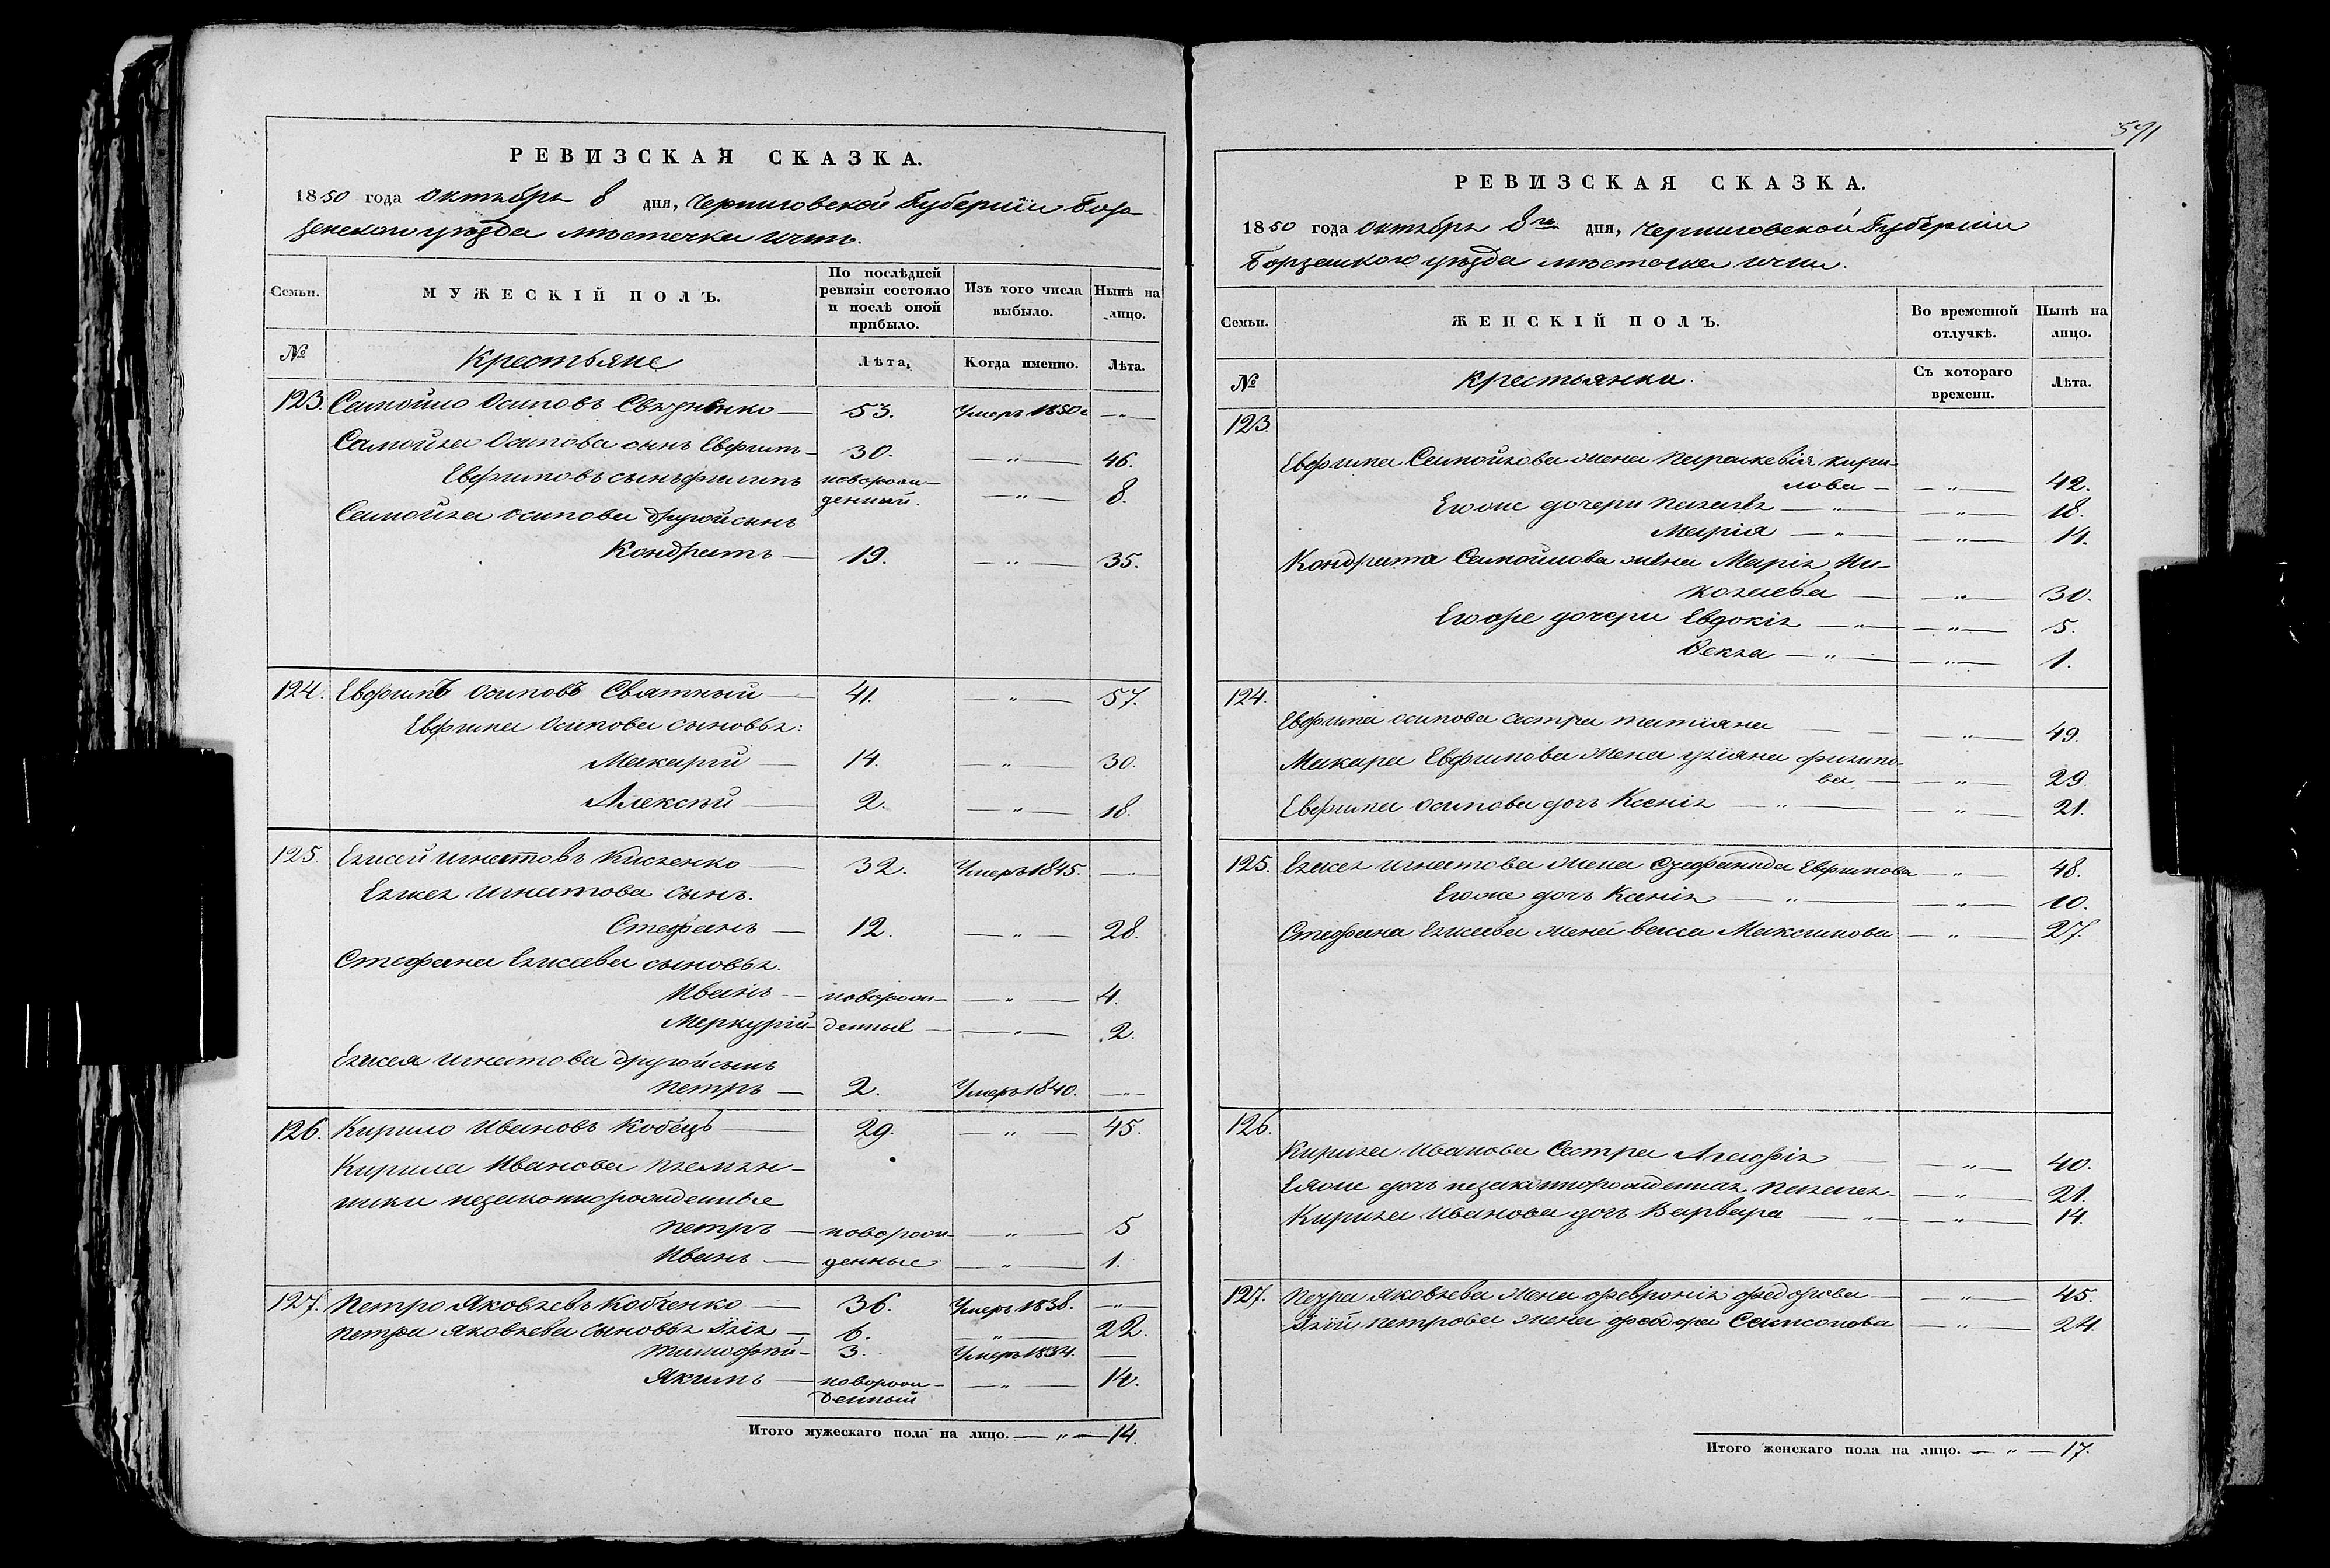 РЕВИЗСКАЯ СКАЗКА.
1850 года Октября 8 дня, Черниговской Губернiи Бор-
зенского уѣзда мѣстечка Ични.
Семьи. МУЖЕСКІЙ ПОЛЪ. По послѣдней ревизіи состояло и послѣ оной прибыло. Изъ того числа выбыло. Нынѣ на лицо.
№ Крестьяне Лѣта. Когда именно. Лѣта.
123. Самойло Осиповъ — 53. Умеръ 1850 — „ —
Самойла Осипова сынъ Евфимъ 30. — „ — 46.
Евфимовъ сынъ Филипъ новорож-денный. — „ — 8.
Самойла Осипова другой сынъ
Кондратъ — 19. — „ — 35.
124. Осиповъ Святный — 41. „ — 57.
Осипова сыновья:
Макарий — 14. — „ — 30.
Алексѣй — 2. — „ — 18.
125. Елисей Игнатовъ Кисленко — 32. Умеръ 1845. — „ —
Елисея Игнатова сынъ.
Стефанъ — 12. — „ — 28.
Стефана Елисеева сыновья.
Иванъ — новорож- — „ — 4.
Меркурій — денные — „ — 2.
Елисея Игнатова другой сынъ
Петръ — 2. Умеръ 1840. — „ —
126. Кирило Ивановъ Кобецъ — 29. — „ — 45.
Кирила Иванова племян-
ники незаконнорожденные
Петръ — новорож- — „ — 5
Иванъ — денные — „ — 1.
127. Петро Яковлевъ Кобченко — 36. Умеръ 1838. — „ —
Петра Яковлева сыновья Ілія — 6. — „ — 22.
Тимофѣй — 3. Умеръ 1834. —
Якимъ — новорож-денный — „ — 14.
Итого мужескаго пола на лицо. — „ — 14.
591
РЕВИЗСКАЯ СКАЗКА.
1850 года Октября 8го дня, Черниговской Губерніи
Борзенского уѣзда мѣстечка Ични.
Семьи. ЖЕНСКІЙ ПОЛЪ. Во временной отлучкѣ. Нынѣ на лицо.
№ Крестьянки. Съ котораго времени. Лѣта.
123.
Самойлова жена Параскевія Кири-
лова — — „ — 42.
Егоже дочери Пелагея — „ — — „ — 18.
Марія — „ — — „ — 14.
Кондрата Самойлова жена Марія Ни-
колаева — — „ — 30.
Егоже дочери Евдокія — „ — — „ — 5.
Векла — „ — — „ — 1.
124.
Осипова сестра Татіяна — — „ — 49.
Макара жена Уліяна Филипо-
ва — — „ — 29.
Осипова дочь Ксенія — „ — — „ — 21.
125. Елисея Игнатова жена — „ — 48.
Егоже дочь Ксенія — „ — — „ — 10.
Стефана Елисеева жена Васса Максимова — „ — 27.
126.
Кирила Иванова сестра Агафія — — „ — 40.
Еяже дочь незаконнорожденная Пелагея — „ — 21.
Кирила Иванова дочь Варвара — „ — — „ — 14.
127. Петра Яковлева жена Февронія Федорова — — „ — 45.
Ілій Петрова жена Феодора Самсонова — „ — 24.
Итого женскаго пола на лицо. — „ — 17.